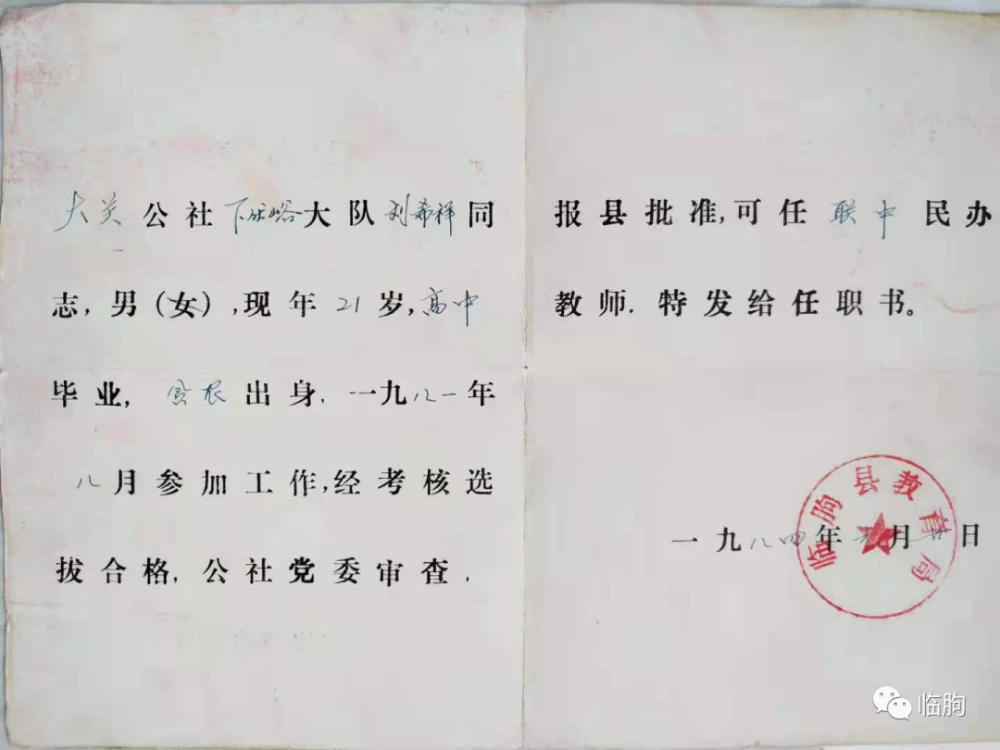 大关公社下 峪大队刘希祥同
志，男（女），现年21岁，高中
毕业，贫农出身．一九八一年
八月参加工作，经考核选
拔合格．公社党委审查．
报县批准，可任联中民办
教师．特发给任职书。
一九八四年 月 日
临朐县教育局
临朐